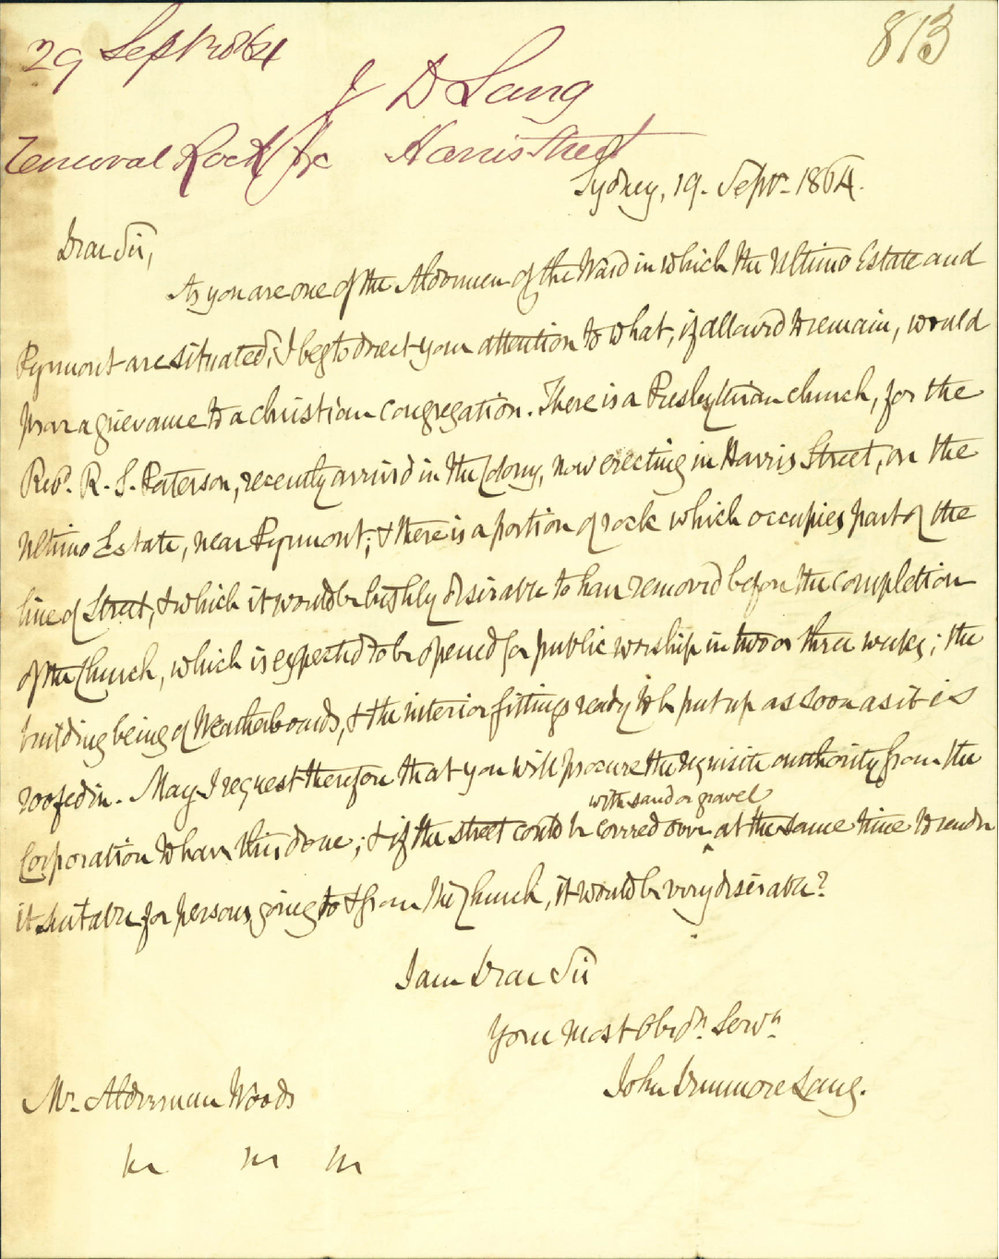 813
29 Sept 1864
J D Lang
removal Rock &c Harris Street
Sydney, 19. Septr. 1864.
Dear Sir,
As you are one of the Aldermen of the Ward in which the Ultimo Estate and
Pyrmont are situated, I beg to direct your attention to what, if allowed to remain, would
prove a grievance to a christian congregation. There is a Presbyterian church, for the
Revd. R. S. Paterson, recently arrived in the Colony, now erecting in Harris Street, on the
Ultimo Estate, near Pyrmont; & there is a portion of rock which occupies part of the
line of Street, & which it would be highly desirable to have removed before the completion
of the Church, which is expected to be opened for public worship in two or three weeks; the
building being of Weatherboards, & the interior fittings ready to be put up as soon as it is
roofed in. May I request therefore that you will procure the requisite authority from the
with sand or gravel
Corporation to have this done; & if the street could be covered over at the same time to render
it suitable for persons going to & from the Church, it would be very desirable?
I am Dear Sir
Your most Obedt. Servt.
John Dunmore Lang.
Mr. Alderman Woods